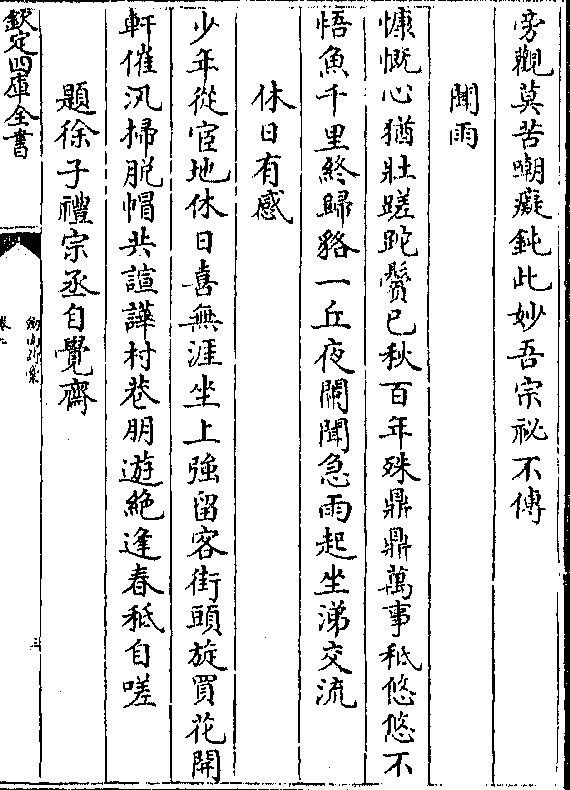 旁觀莫苦嘲癡鈍此妙吾宗祕不傳
聞雨
慷慨心猶壯蹉跎鬢已秋百年殊鼎鼎萬事秪悠悠不
悟魚千里終歸貉一丘夜闌聞急雨起坐涕交流
休日有感
少年從宦地休日喜無涯坐上強留客街頭旋買花開
軒催汛掃脱帽共諠譁村巷朋遊絶逢春秪自嗟
題徐子禮宗丞自覺齋
欽定四庫全書